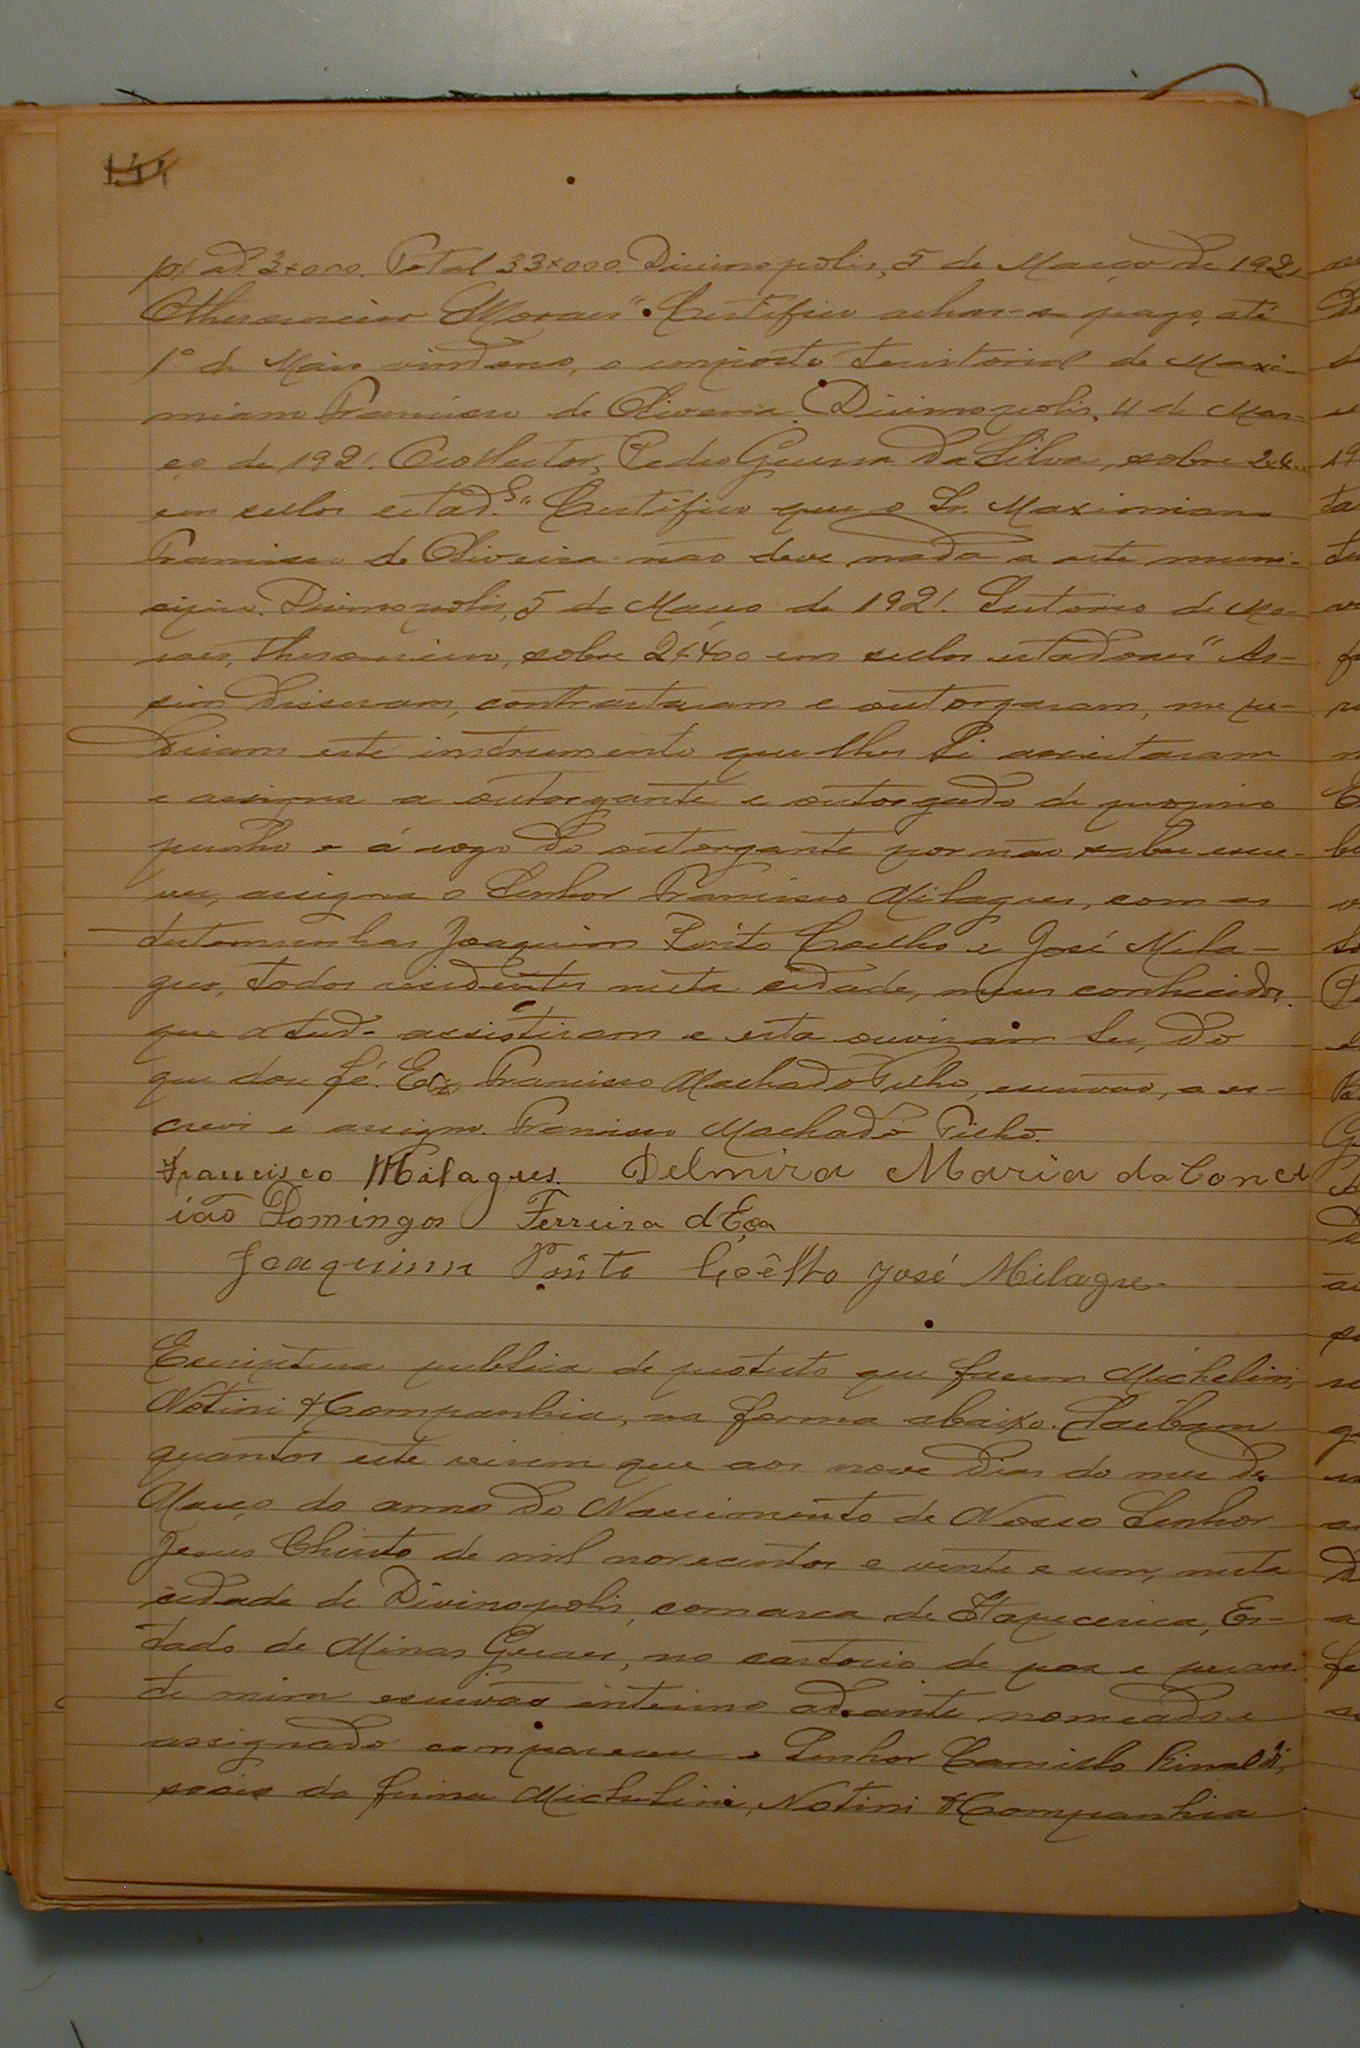 p/ ad. 3$000. Total 33$000. Divinopolis, 5 de Março de 192
Moraes". Certifico achar-se pago, até
1º de Maio vindouro, o imposto territorial de Maxi-
miano Francisco de Oliveira. Divinopolis, 4 de Mar-
ço de 1921. O collector, Pedro Guerra da Silva, sobre
em sellos estad.s" Certifico que o Sr. Maximiano
Francisco de Oliveira não deve nada a este muni-
cipio. Divinopolis, 5 de Março de 1921. de Mo-
raes, thesoureiro, sobre 2$400 em sellos estadoaes" As-
sim disseram, contractaram e outorgaram, me pe-
diram este instrumento que lhes li acceitaram
e assigna a outorgante e outorgado de proprio
punho e á rogo do outorgante por não saber escre-
ver, assigna o Senhor Francisco Milagres, com as
testemunhas Joaquim Pinto Coelho e José Mila-
gres, todos residentes nesta cidade, meus conhecidos
que a tudo assistiram e esta ouviram ler, do
que dou fé. Eu, Francisco Machado Filho, escrivão, a es-
crevi e assigno. Francisco Machado Filho.
Francisco Milagres. Delmira Maria da Conce
ião Domingos Ferreira d'Eça
Joaquim Pinto Coêlho José Milagre
Escriptura publica de protesto que fazem Michelini,
Notini & Companhia, na forma abaixo. Saibam
quantos este virem que aos nove dias do mez de
Março do anno do Nascimento de Nosso Senhor
Jesus Christo de mil novecentos e vinte e um, nesta
cidade de Divinopolis, comarca de Itapecerica, Es-
tado de Minas Geraes, no cartorio de paz e peran-
te mim escrivão interino adeante nomeado e
assignado compareceu o Senhor Camillo Rinaldi,
socio da firma Michelini, Notini & Companhia